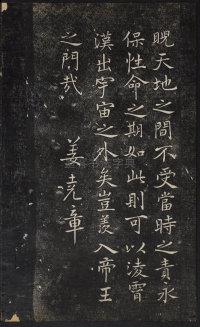 睨天地之間不受當時之責永
保性命之期如此則可以凌霄
漢出宇宙之外矣豈羨入帝王
之門哉
姜堯章